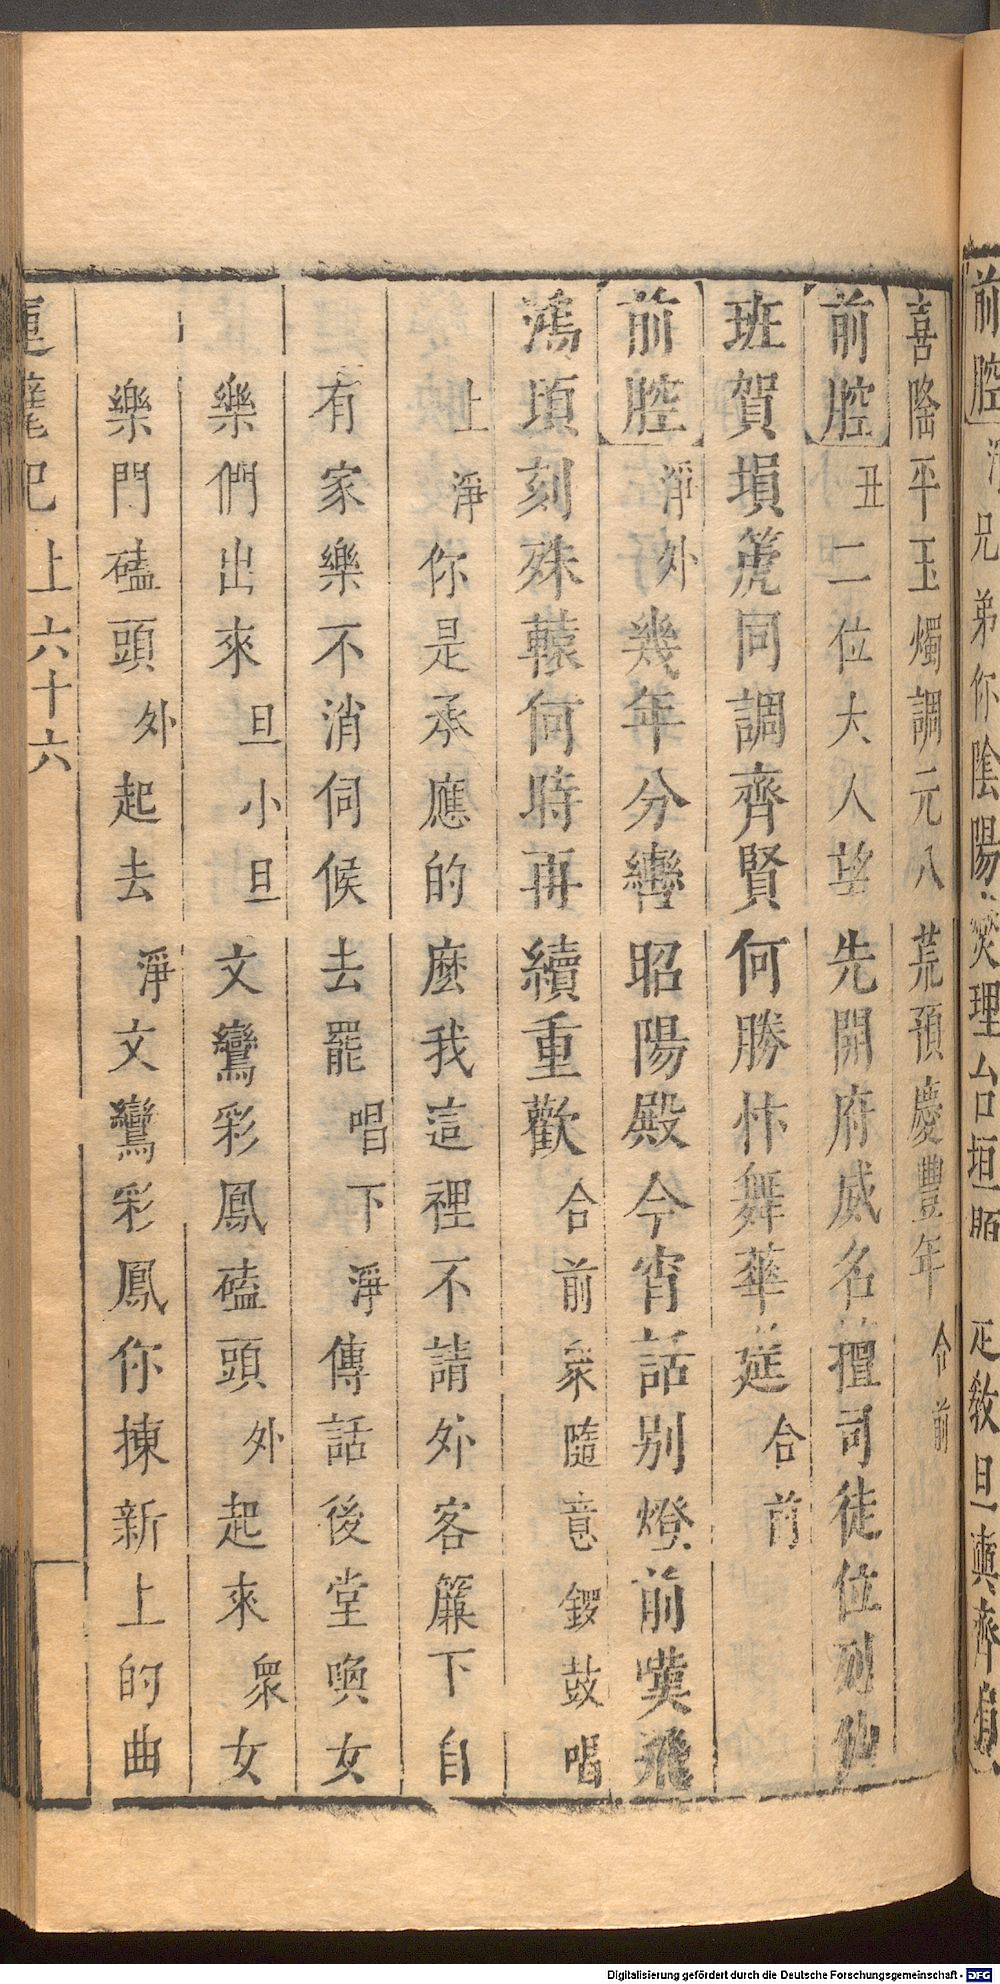 前腔 淨 兄弟你陰陽燮理台垣 正敎旦
喜隆平玉燭調元八荒預慶豐年 合前
前腔 丑 二位大人望先開府威名擅司徒位列仙
班賀塤箎同調齊賢何勝忭舞華莚 合前
前腔 淨外 幾年分轡昭陽殿今宵話别燈前嘆飛
鴻頃刻殊轅何時再續重歡 合前 衆隨意鑼鼓唱
上 淨 你是承應的麼我這裡不請外客簾下自
有家樂不消伺候去罷 唱下 淨 傳話後堂喚女
樂們出來 旦小旦 文鸞彩鳳磕頭 外 起來 衆 女
樂門磕頭 外 起去 淨 文鸞彩鳳你揀新上的曲
上 六十六
Digitalisierung gefördert durch die Deutsche Forschungsgemeinschaft - DFG